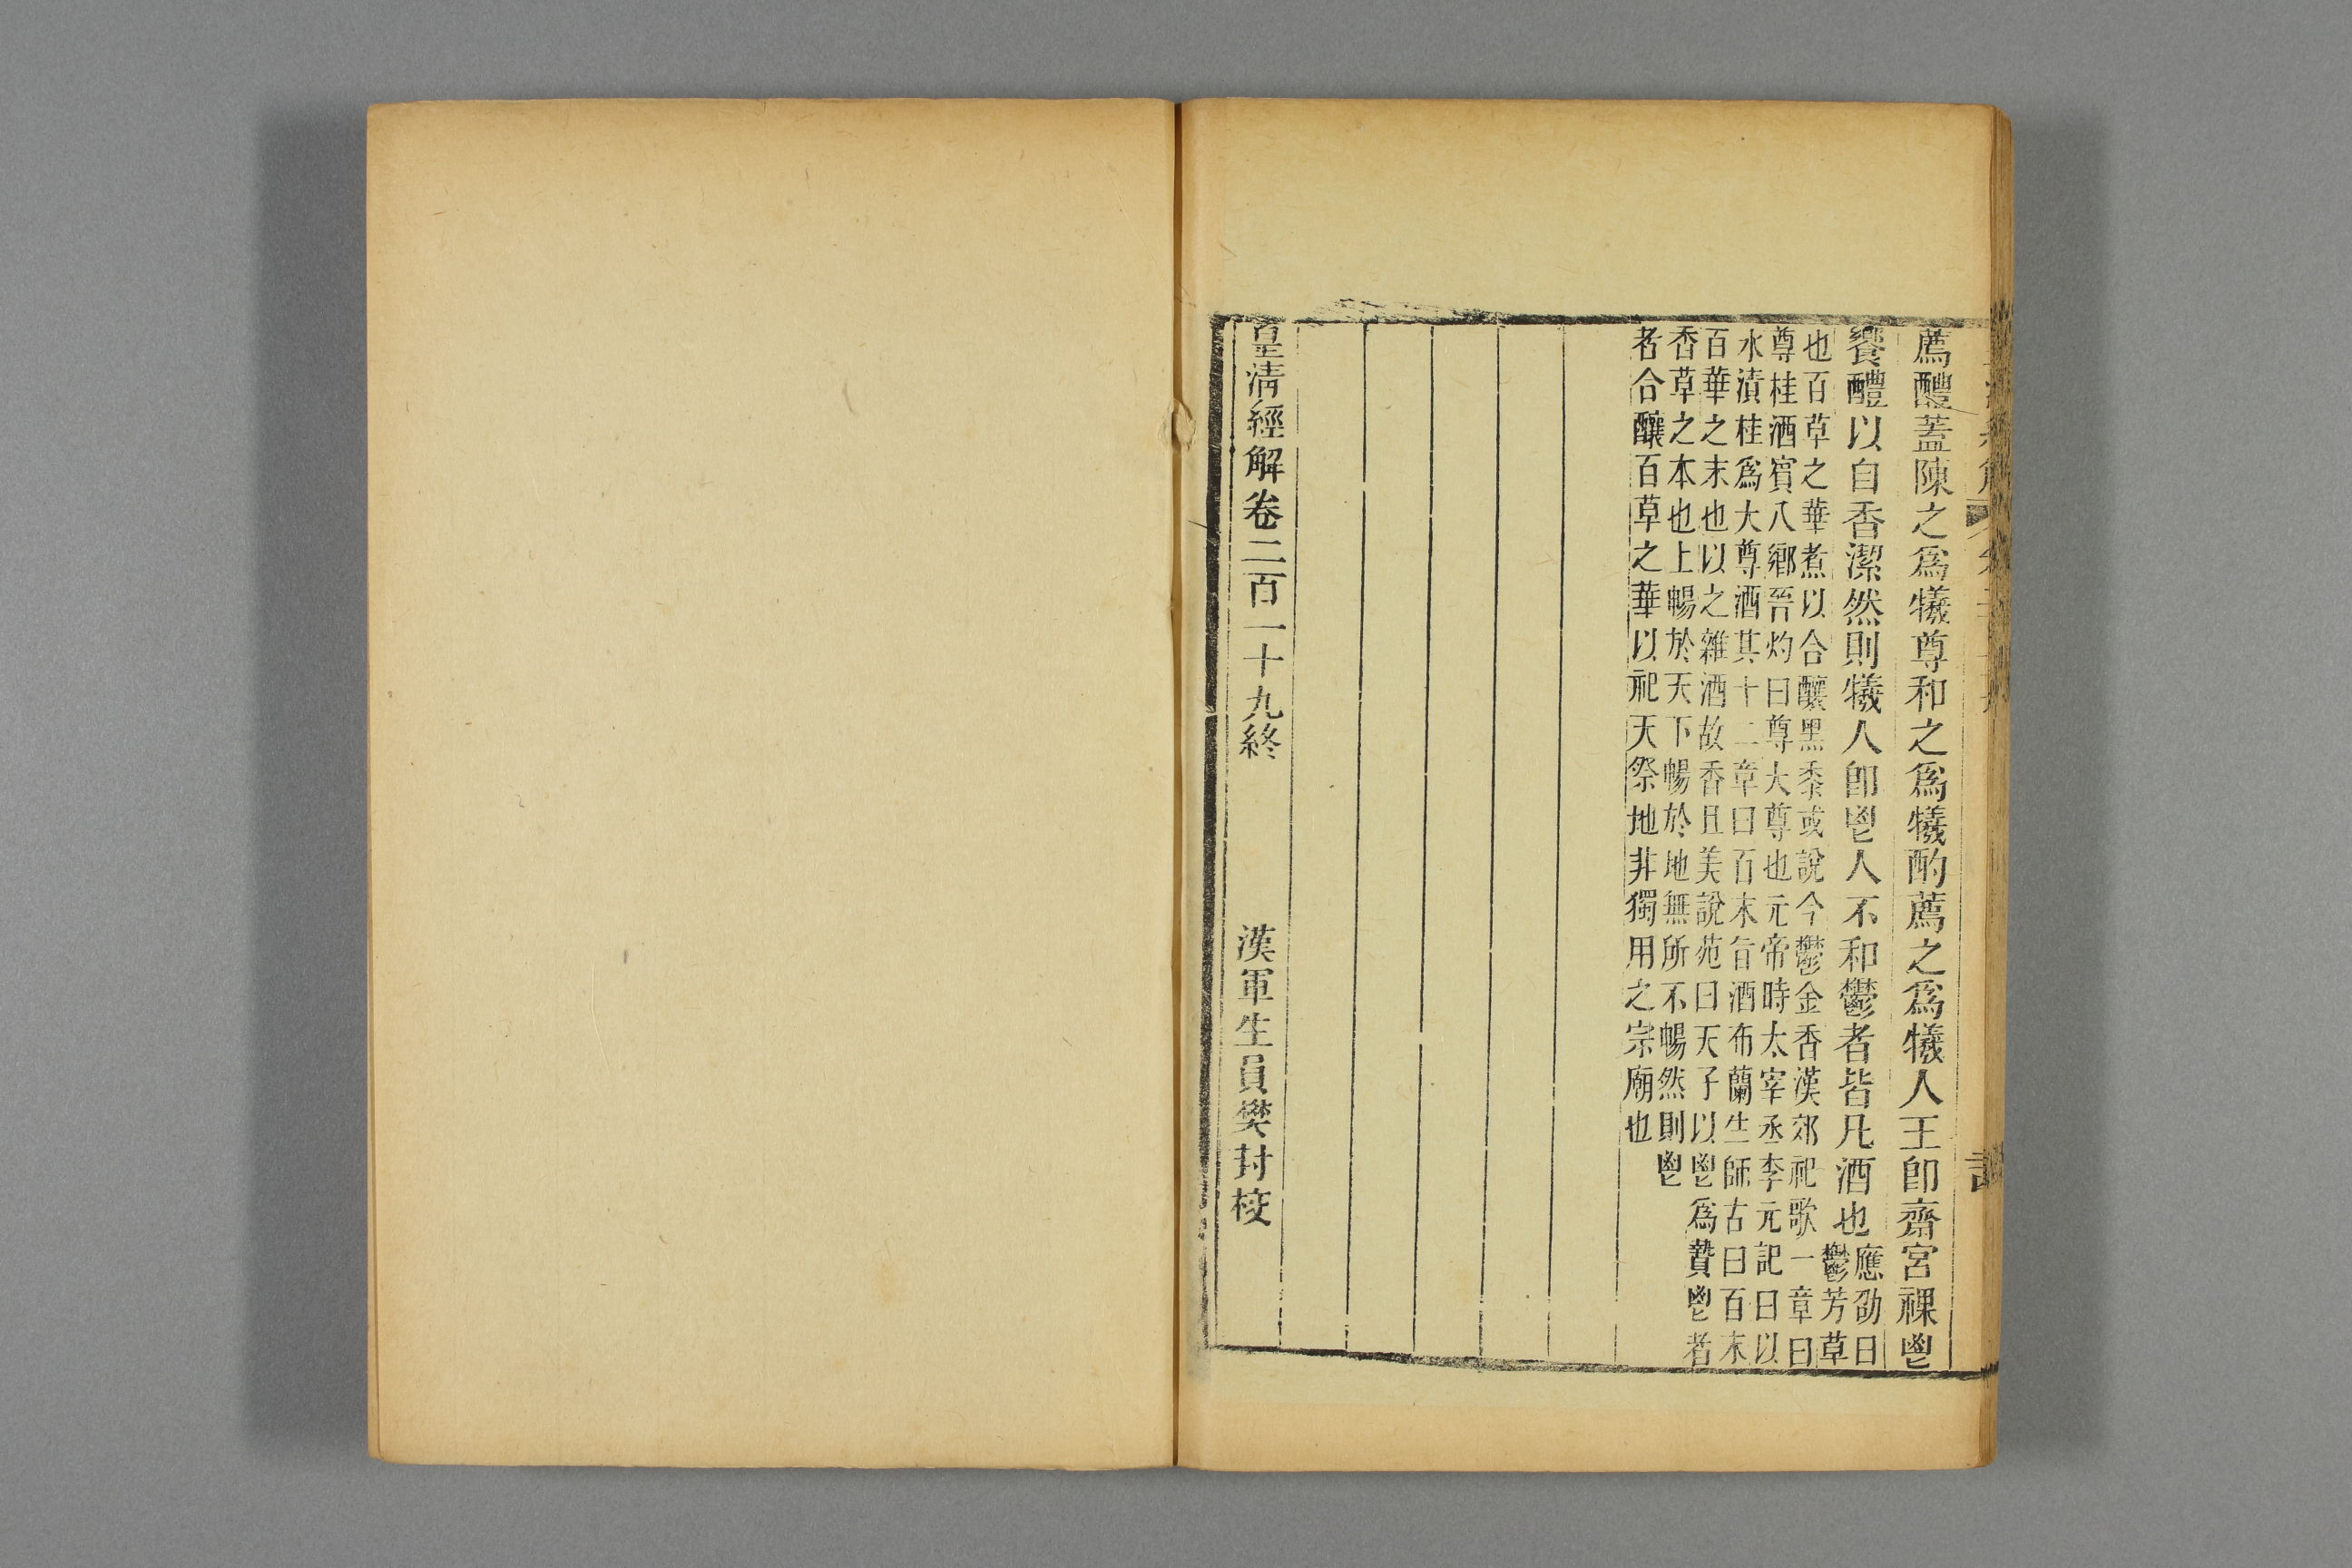 薦醴蓋陳之爲犧尊和之爲犧酌薦之爲犧人王卽齋宮祼鬯
饗醴以自香潔然則犧人卽鬯人不和鬱者皆凡酒也應劭曰
鬱芳草
也百草之華煮以合釀黑黍或說今鬱金香漢郊祀歌一章曰
尊桂酒賓八鄉晉灼曰尊大尊也元帝時太宰丞李元記曰以
水漬桂爲大尊酒其十二章曰百末旨酒布蘭生師古曰百末
百華之末也以之雜酒故香且美說苑曰天子以鬯爲贄鬯者
香草之本也上暢於天下暢於地無所不暢然則鬯
者合釀百草之華以祀天祭地非獨用之宗廟也
皇淸經解卷二百一十九終
漢軍生員樊封校